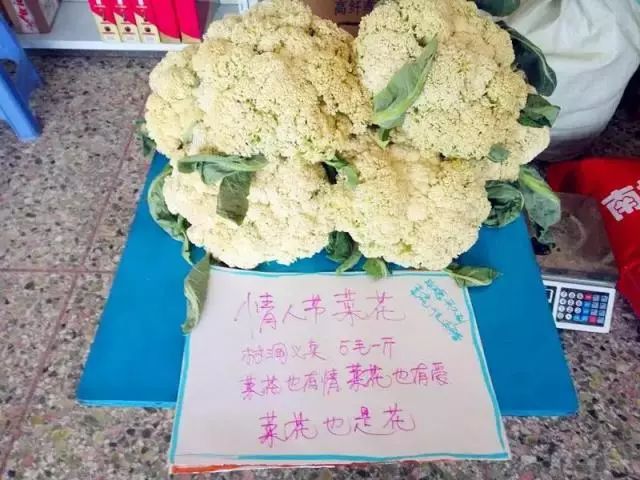 情人节菜花
树洞义卖 5毛一斤
菜花也有情 菜花也有爱
菜花也是花